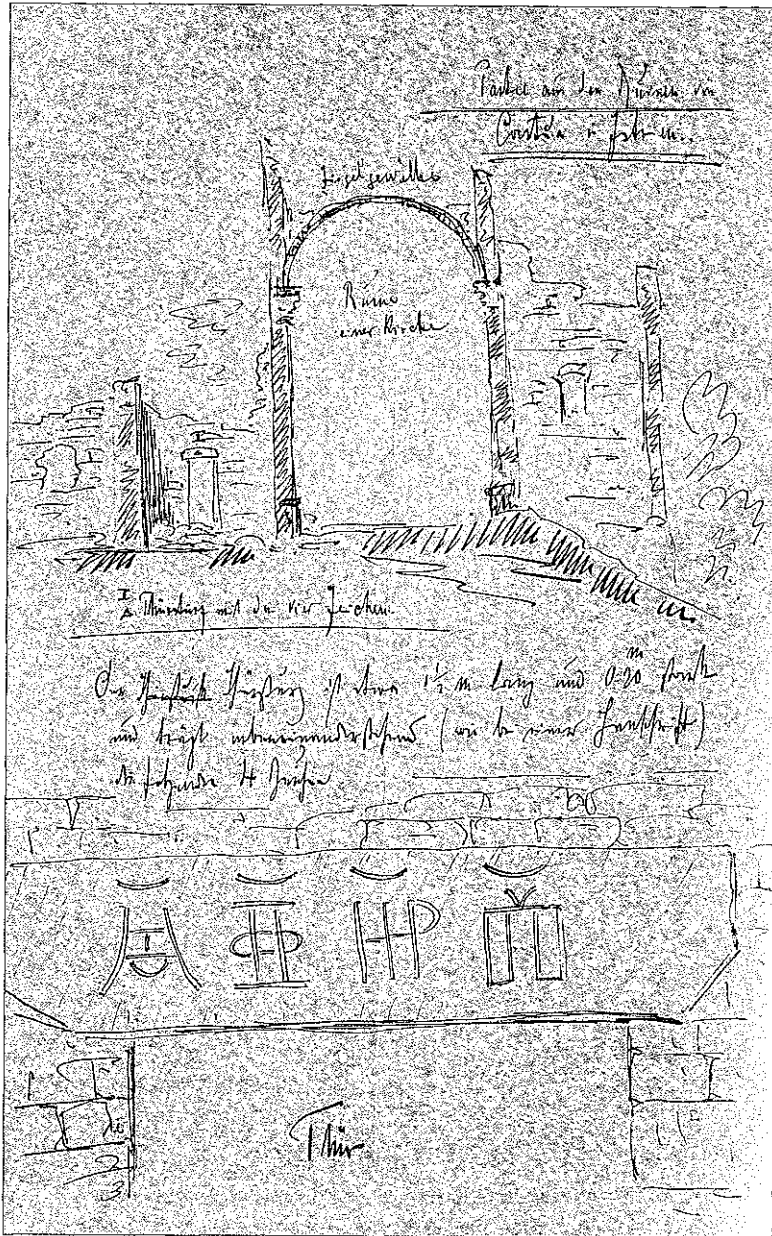 Partie aus den Ruinen von
Castua in Istrien.
Ruine
einer Kirche
Thürsturz mit den vier Zeichen.
Der Thürsturz ist etwa 1½ m lang und 0.30 m stark
und trägt nebeneinanderstehend (wie bei einer Inschrift)
folgende 4 Zeichen
Thür